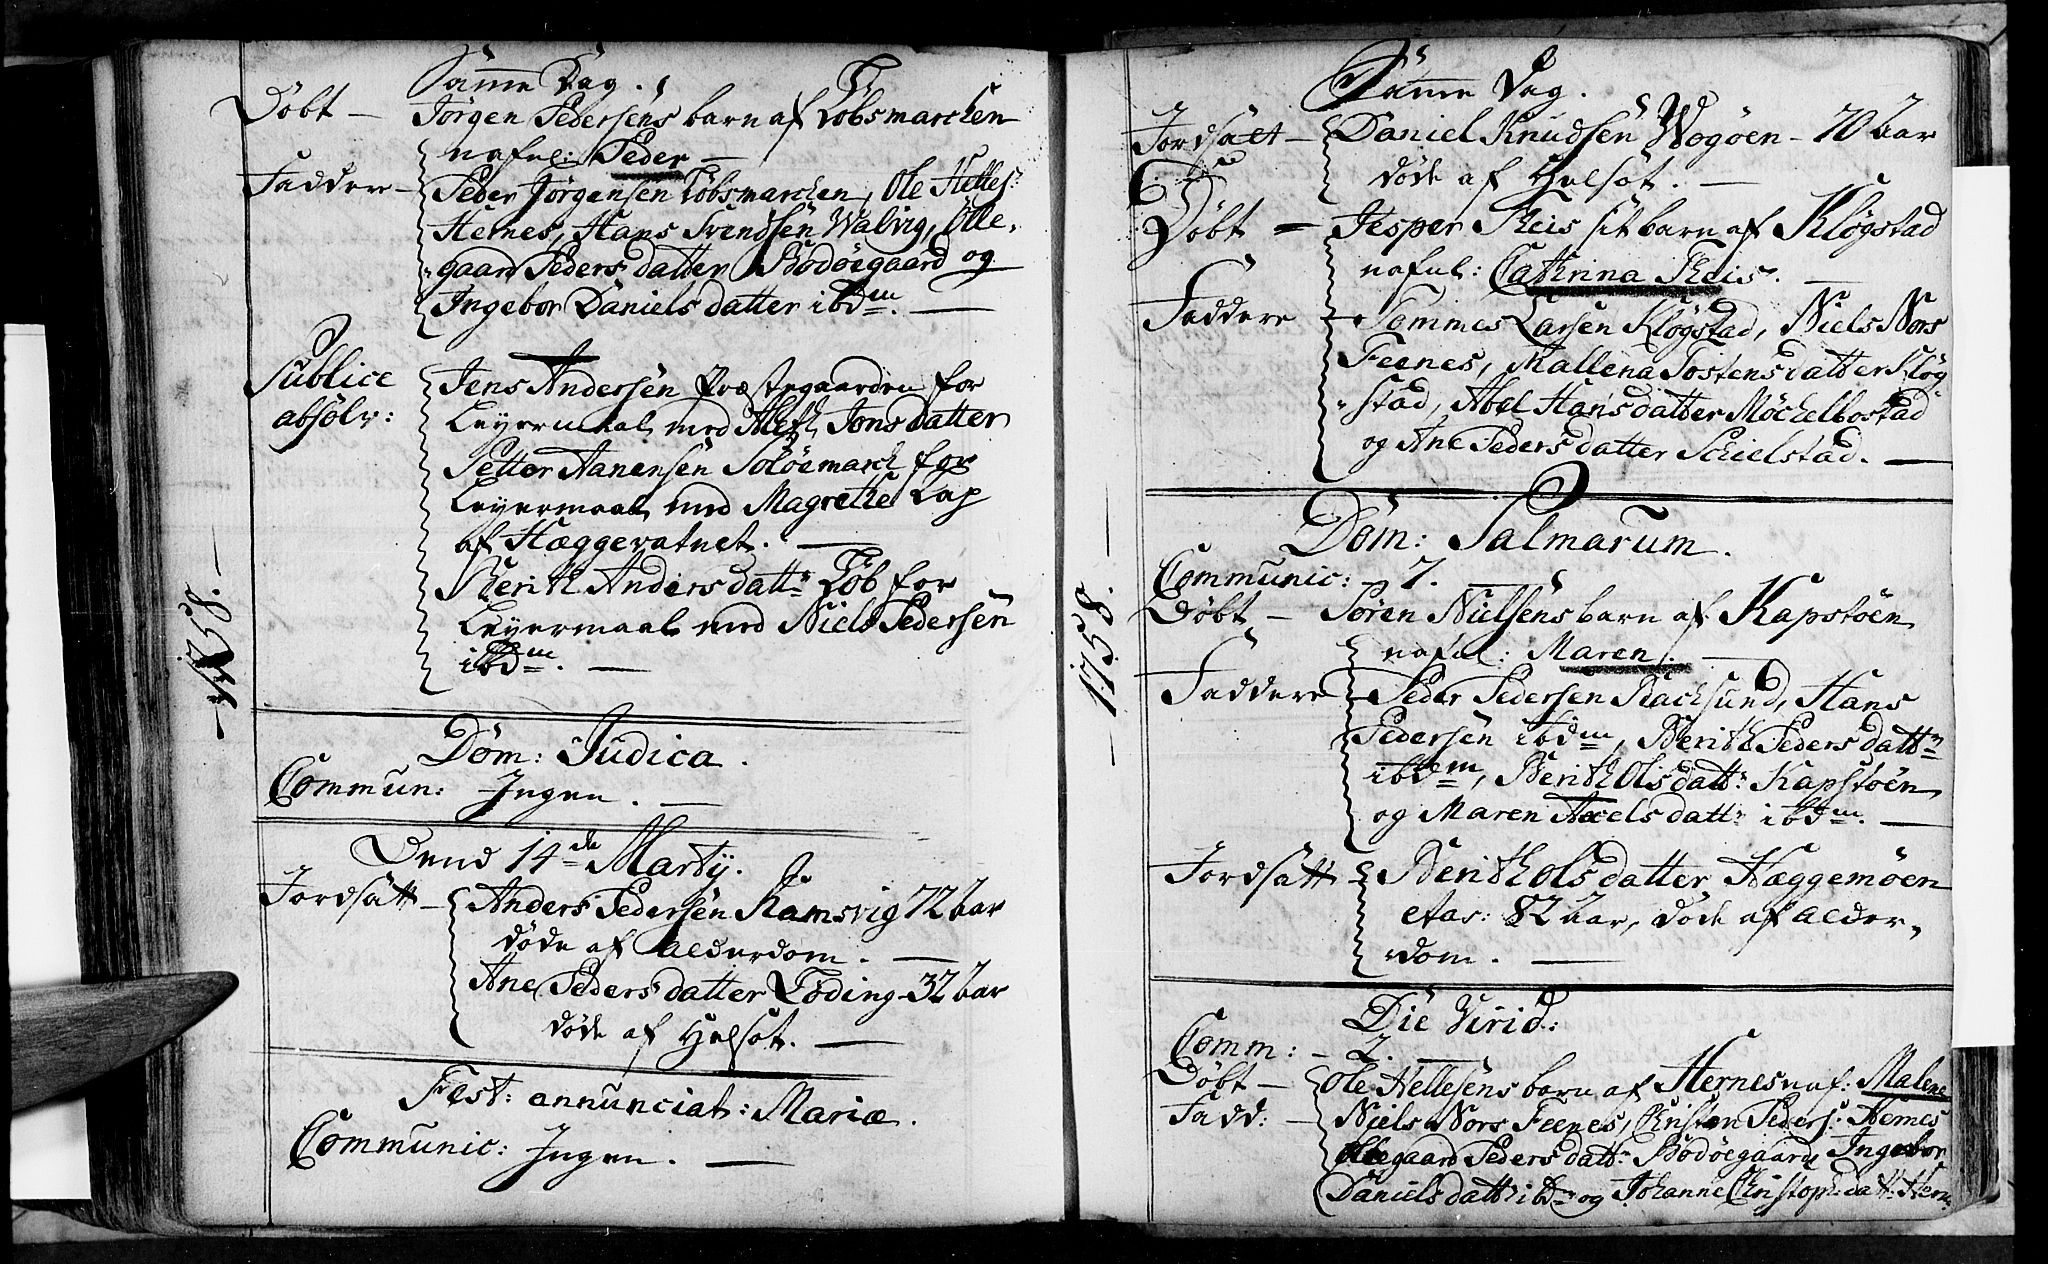 Samme Dag.
Døbt — Jørgen Pedersens barn af Løbsmarchen
nafnl: Peder —
Faddere — Peder Jørgensen Løbsmarchen, Ole Helles:
Hernes, Hans Svendsen Walvig, Olle-
gaard Peders datter Bodøegaard og
Ingebor Daniels datter ibdm. —
Publice absolv: Jens Andersen Præstegaarden for
Leyermaal med Aleth Jons datter
Petter Aanensen Soløemarch for
Leyermaal med Magrethe Lap
af Hæggevatnet. —
Berith Anders dattr Løb for
Leyermaal med Niels Pedersen
ibdm. —
— 1758. —
Dom: Judica.
Commun: Ingen. —
Dend 14de Martij.
Jordsatt — Anders Pedersen Ramsvig 72 Aar
døde af Alderdom. —
Ane Peders datter Løding — 32 Aar
døde af Helsot. —
Fest: annunciat: Mariæ.
Communic: Ingen. —
Samme Dag.
Jordsatt — Daniel Knudsen Wogøen — 70 Aar
døde af Helsot. —
Døbt — Jesper Theis sit barn af Kløgstad
nafnl: Cathrina Theis. —
Faddere — Tommes Larsen Kløgstad, Niels Nors
Feenes, Mallena Tostens datter Kløg-
stad, Abel Hans datter Møchelbostad
og Ane Peders datter Schielstad. —
— 1758. —
Dom: Palmarum.
Communic: — 7. —
Døbt — Søren Nielsens barn af Kapstøen
nafnl: Maren. —
Faddere — Peder Pedersen Bachsund, Hans
Pedersen ibdm, Berith Peders dattr
ibdm, Berith Ols datt: Kapstøen
og Maren Axels datt: ibdm. —
Jordsatt — Berith Ols datter Hæggemoen
etas: 82 Aar, døde af Alder-
dom. —
Die Virid:
Comm: — 2. —
Døbt — Ole Hellesens barn af Hernes naf: Malene
Fadd: — Niels Nors Feenes, Christen Peders: Hernes
Ollegaard Peders datt: Bodøegaard, Ingebor
Daniels datt: ibd: og Johanne Christoph: datt: Hern: